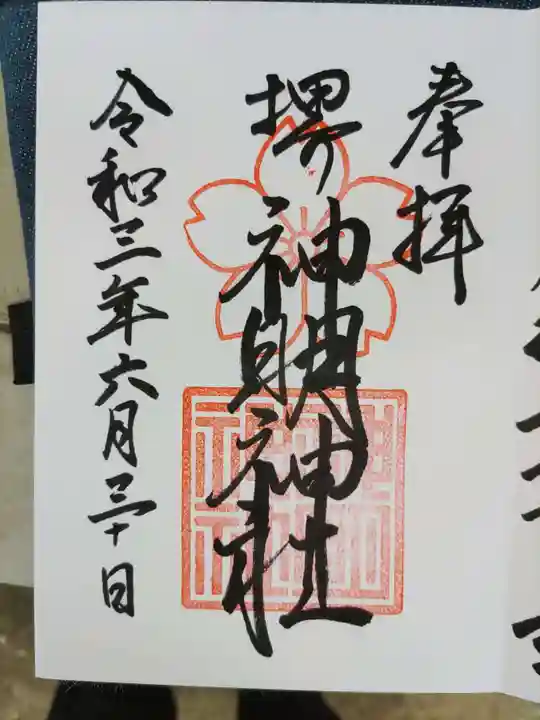 奉拝
堺
神明神社
令和三年六月三十日